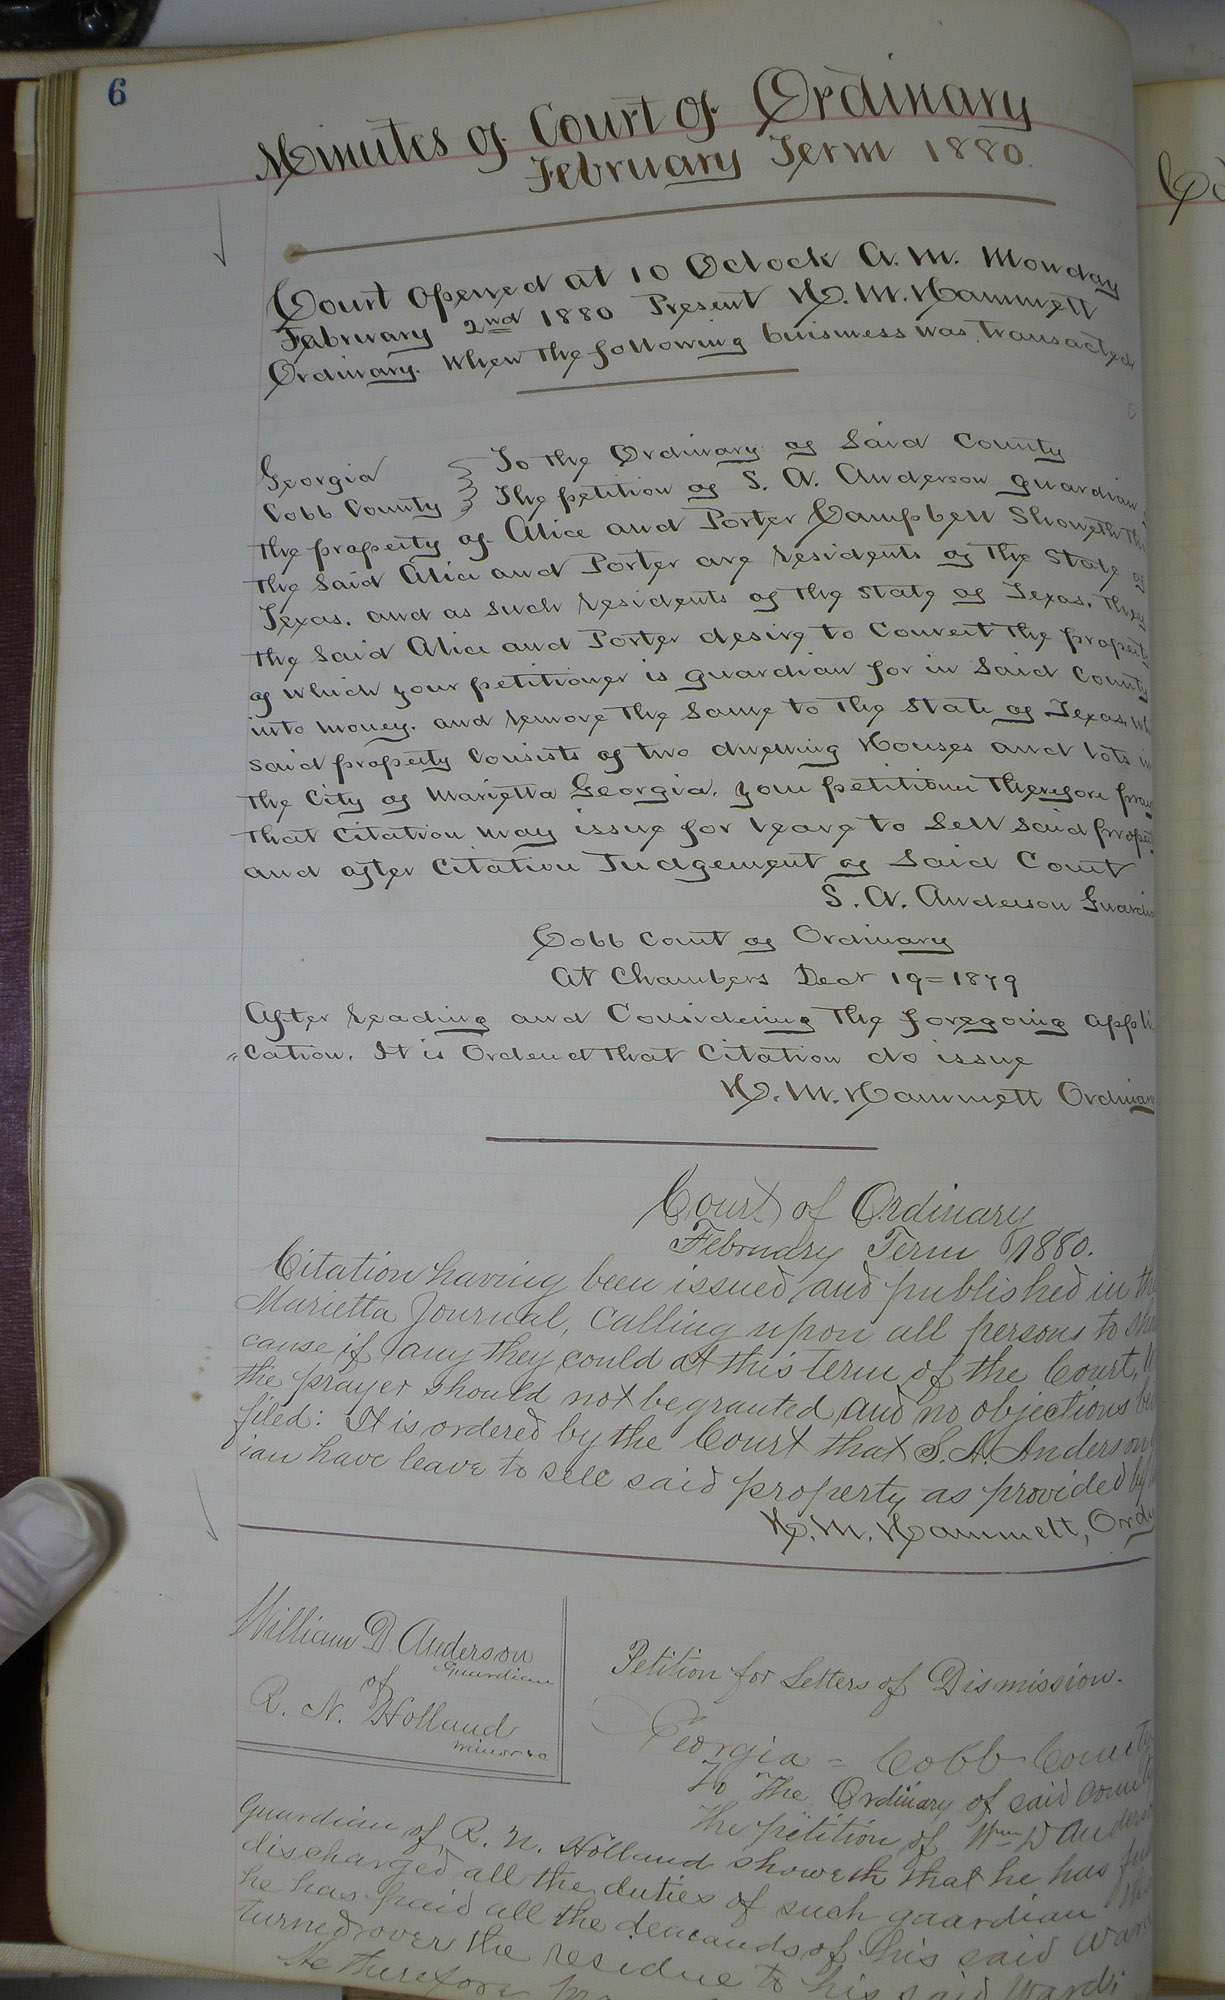 6
Minutes of Court of Ordinary
February Term 1880.
Court opened at 10 Oclock A. M. Monday
February 2nd 1880 Present H. M. Hammett
Ordinary. When the following buisness was transacted
Georgia
Cobb County
To the Ordinary of Said County
The petition of S. A. Anderson guardian
the property of Alice and Porter Campbell Showeth
the Said Alice and Porter are residents of the State of
Texas. and as such residents of the State of Texas. they
the Said Alice and Porter desire to Convert the property
of which your petitioner is guardian for in Said County
into money. and remove the Same to the State of Texas.
said property Consists of two dwelling Houses and lots in
the City of Marietta Georgia. your petitioner therefore pray
that Citation may issue for leave to Sell Said
and after Citation Judgement of Said Court
S. A. Anderson
Cobb Court of Ordinary
At Chambers Decr 19=1879
After reading and Considering the foregoing appli
"cation. It is Ordered that Citation do issue
H. M. Hammett
Court of Ordinary
February Term 1880.
Citation having been issued and published in the
Marietta Journal, calling upon all persons to
cause if any they could at this term of the Court,
the prayer should not be granted and no objections
filed: It is ordered by the Court that S. A. Anderson
ian have leave to sell said property as provided by
H. M. Hammett, Ordy
William D. Anderson
Guardian
of
R. N. Holland
minor &c
Petition for Letters of Dismission.
Georgia = Cobb County
To The Ordinary of said County
The petition of Wm D
Guardian of R. N. Holland showeth that he has
discharged all the duties of such guardian
he has paid all the demands of his said
turned over the residue to his said Ward
He therefore